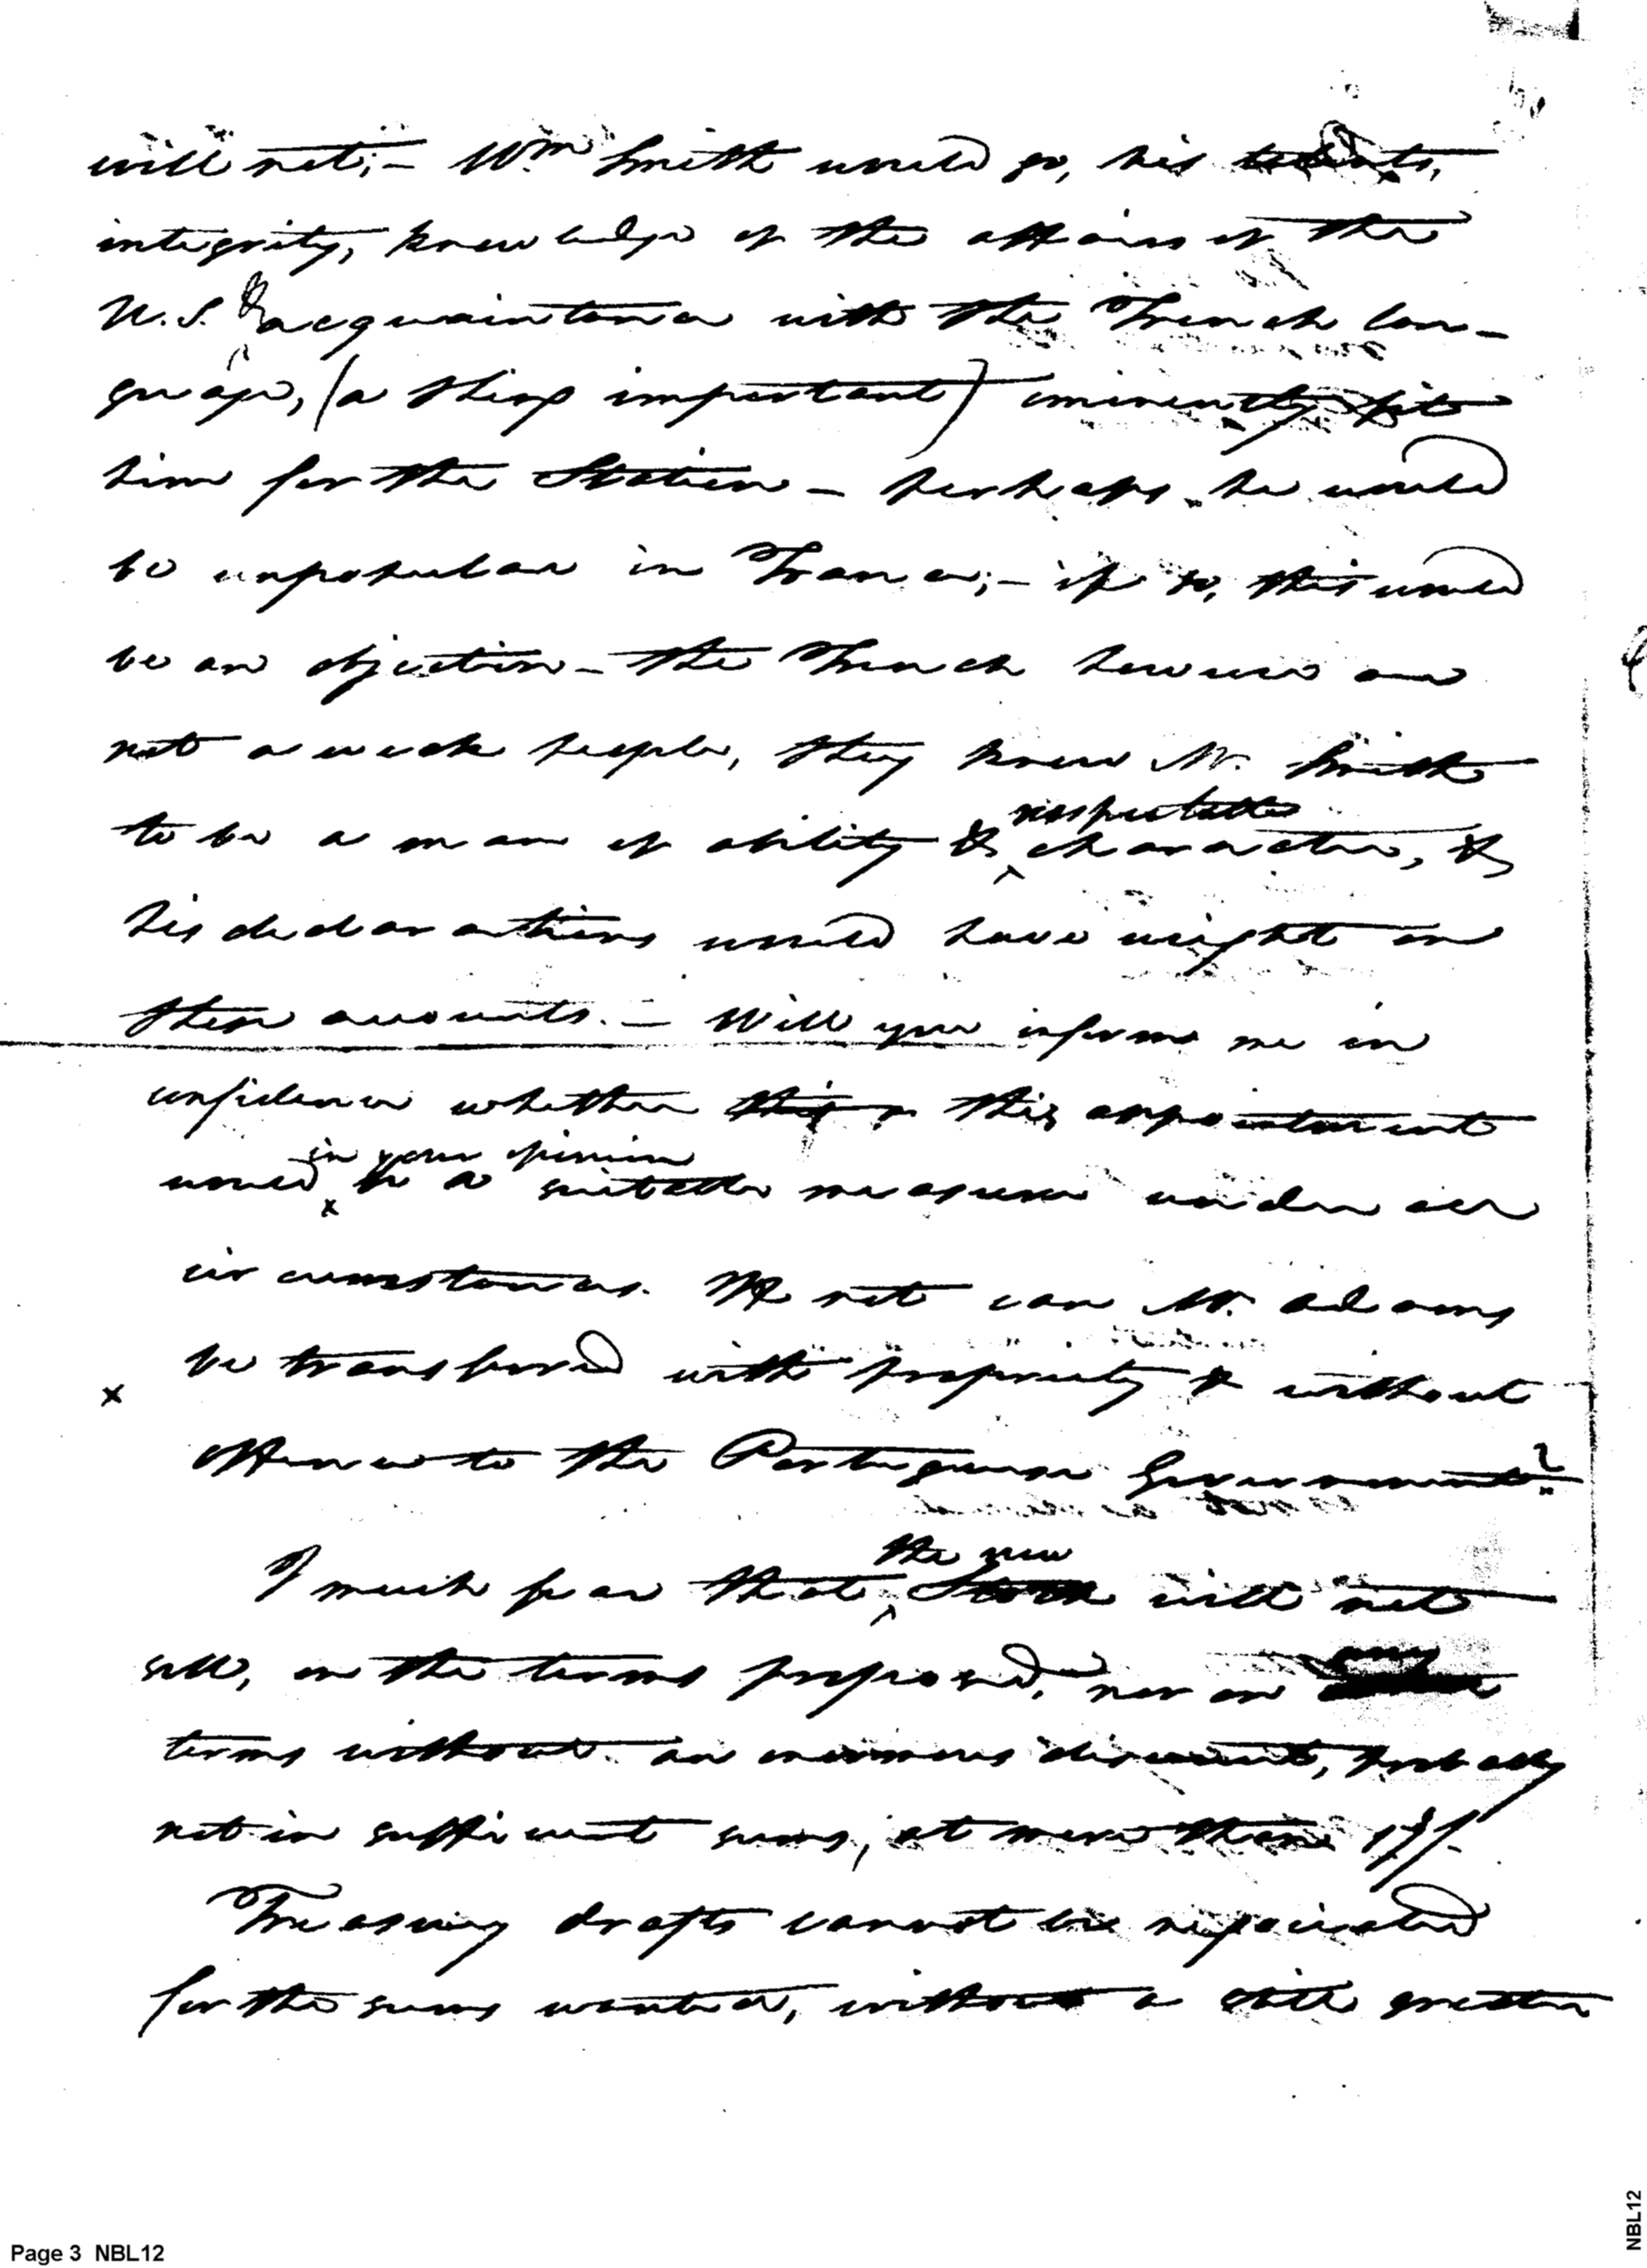 will not;– Wm Smith would go, his talents,
integrity, knowledge of the affairs of the
U.S. & acquaintance with the French lan–
guage, (a thing important) eminently fit
him for the Station – perhaps he would
be unpopular in France;– if so, this would
be an objection – the French however are
not a weak people, they know Mr. Smith
respectable
to be a man of ability & character, &
his declarations would have weight on
these accounts. – Will you inform me in
confidence whether this appointment
in your opinion
would be a suitable measure under all
circumstances. If not can Mr. Adams
x be transferred with propriety & without
offence to the Portuguese Government?
the new
I much fear that Stock will not
sell, on the terms proposed, nor on any
terms without an enormous discount, probably
not in sufficient sums, at more than 17/.
Treasury drafts cannot be negociated
for the sums wanted, without a still greater
Page 3 NBL12
NBL12